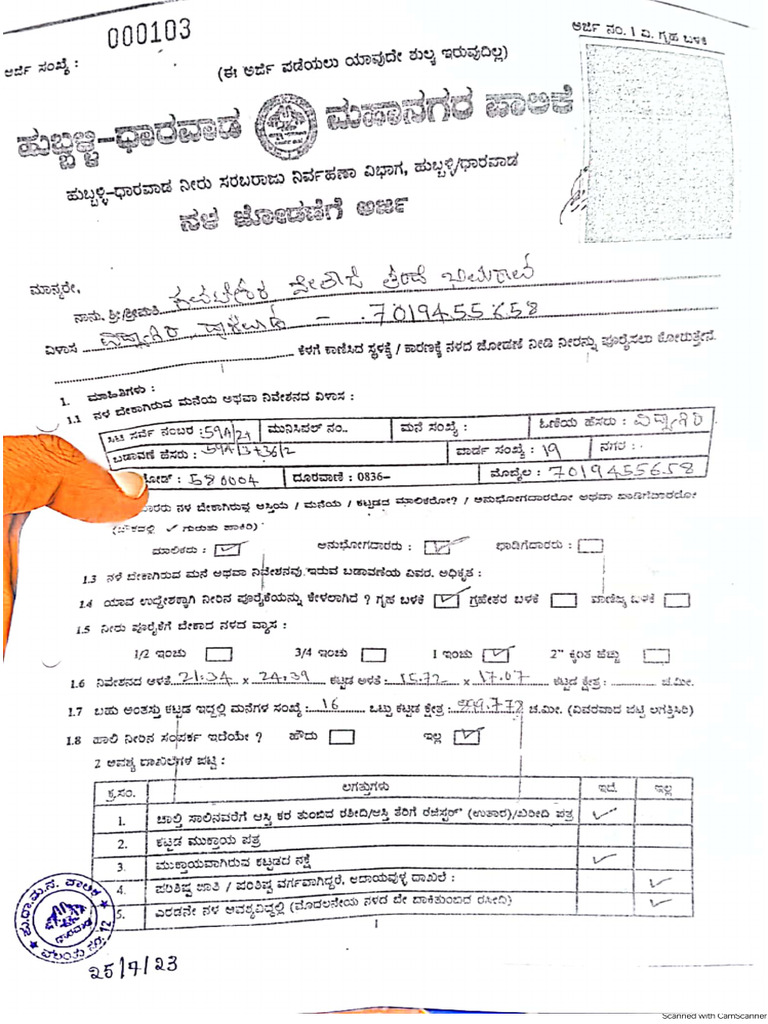 ಅರ್ಜಿ ನಂ. 1 ವಿ. ಗೃಹ ಬಳಕೆ
000103
ಅರ್ಜಿ ಸಂಖ್ಯೆ :
(ಈ ಅರ್ಜಿ ಪಡೆಯಲು ಯಾವುದೇ ಶುಲ್ಕ ಇರುವುದಿಲ್ಲ)
ಹುಬ್ಬಳ್ಳಿ-ಧಾರವಾಡ ಮಹಾನಗರ ಪಾಲಿಕೆ
ಹುಬ್ಬಳ್ಳಿ-ಧಾರವಾಡ ನೀರು ಸರಬರಾಜು ನಿರ್ವಹಣಾ ವಿಭಾಗ, ಹುಬ್ಬಳ್ಳಿ/ಧಾರವಾಡ
ನಳ ಜೋಡಣೆಗೆ ಅರ್ಜಿ
ಮಾನ್ಯರೇ,
ನಾನು, ಶ್ರೀ/ಶ್ರೀಮತಿ
ವಿಳಾಸ - 7019455658
ಕೆಳಗೆ ಕಾಣಿಸಿದ ಸ್ಥಳಕ್ಕೆ / ಕಾರಣಕ್ಕೆ ನಳದ ಜೋಡಣೆ ನೀಡಿ ನೀರನ್ನು ಪೂರೈಸಲು ಕೋರುತ್ತೇನೆ.
1. ಮಾಹಿತಿಗಳು :
1.1 ನಳ ಬೇಕಾಗಿರುವ ಮನೆಯ ಅಥವಾ ನಿವೇಶನದ ವಿಳಾಸ :
ಸಿಟಿ ಸರ್ವೆ ನಂಬರ : 59A/21 ಮುನಿಸಿಪಲ್ ನಂ.. ಮನೆ ಸಂಖ್ಯೆ : ಓಣಿಯ ಹೆಸರು : ವಿದ್ಯಾಗಿರಿ
ಬಡಾವಣೆ ಹೆಸರು : 59A/3736/2 ವಾರ್ಡ ಸಂಖ್ಯೆ : 19 ನಗರ :
ಕೋಡ್ : 580004 ದೂರವಾಣಿ : 0836- ಮೊಬೈಲ : 7019455658
ನಳ ಬೇಕಾಗಿರುವ ಆಸ್ತಿಯ / ಮನೆಯ / ಕಟ್ಟಡದ ಮಾಲಿಕರೋ? / ಅನುಭೋಗದಾರರೋ ಅಥವಾ ಬಾಡಿಗೆದಾರರೋ
(ಚೌಕದಲ್ಲಿ ✓ ಗುರುತು ಹಾಕಿರಿ)
ಮಾಲಿಕರು : ✓ ಅನುಭೋಗದಾರರು : ✓ ಬಾಡಿಗೆದಾರರು :
1.3 ನಳೆ ಬೇಕಾಗಿರುವ ಮನೆ ಅಥವಾ ನಿವೇಶನವು. ಇರುವ ಬಡಾವಣೆಯ ವಿವರ. ಅಧಿಕೃತ :
1.4 ಯಾವ ಉದ್ದೇಶಕ್ಕಾಗಿ ನೀರಿನ ಪೂರೈಕೆಯನ್ನು ಕೇಳಲಾಗಿದೆ ? ಗೃಹ ಬಳಕೆ ✓ ಗೃಹೇತರ ಬಳಕೆ ವಾಣಿಜ್ಯ ಬಳಕೆ
1.5 ನೀರು ಪೂರೈಕೆಗೆ ಬೇಕಾದ ನಳದ ವ್ಯಾಸ :
1/2 ಇಂಚು 3/4 ಇಂಚು 1 ಇಂಚು ✓ 2" ಕ್ಕಿಂತ ಹೆಚ್ಚು
1.6 ನಿವೇಶನದ ಅಳತೆ 21.34 x 24.39 ಕಟ್ಟಡ ಅಳತೆ : 15.72 x 17.07 ಕಟ್ಟಡ ಕ್ಷೇತ್ರ : ಚ.ಮೀ.
1.7 ಬಹು ಅಂತಸ್ತು ಕಟ್ಟಡ ಇದ್ದಲ್ಲಿ ಮನೆಗಳ ಸಂಖ್ಯೆ : 16 ಒಟ್ಟು ಕಟ್ಟಡ ಕ್ಷೇತ್ರ : ಚ.ಮೀ. (ವಿವರವಾದ ಪಟ್ಟಿ ಲಗತ್ತಿಸಿರಿ)
1.8 ಹಾಲಿ ನೀರಿನ ಸಂಪರ್ಕ ಇದೆಯೇ ? ಹೌದು ಇಲ್ಲ ✓
2 ಅವಶ್ಯ ದಾಖಲೆಗಳ ಪಟ್ಟಿ :
ಕ್ರ.ಸಂ. ಲಗತ್ತುಗಳು ಇದೆ. ಇಲ್ಲ
1. ಚಾಲ್ತಿ ಸಾಲಿನವರೆಗೆ ಆಸ್ತಿ ಕರ ತುಂಬಿದ ರಶೀದಿ/ಆಸ್ತಿ ತೆರಿಗೆ ರಜಿಸ್ಟರ್ (ಉತಾರ)/ಖರೀದಿ ಪತ್ರ ✓
2. ಕಟ್ಟಡ ಮುಕ್ತಾಯ ಪತ್ರ
3. ಮುಕ್ತಾಯವಾಗಿರುವ ಕಟ್ಟಡದ ನಕ್ಷೆ ✓
4. ಪರಿಶಿಷ್ಟ ಜಾತಿ / ಪರಿಶಿಷ್ಟ ವರ್ಗವಾಗಿದ್ದರೆ, ಆದಾಯವುಳ್ಳ ದಾಖಲೆ : ✓
5. ಎರಡನೇ ನಳ ಅವಶ್ಯವಿದ್ದಲ್ಲಿ (ಮೊದಲನೇಯ ನಳದ ಬೇ ಬಾಕಿತುಂಬಿದ ರಸೀದಿ) ✓
1
25/7/23
Scanned with CamScanner